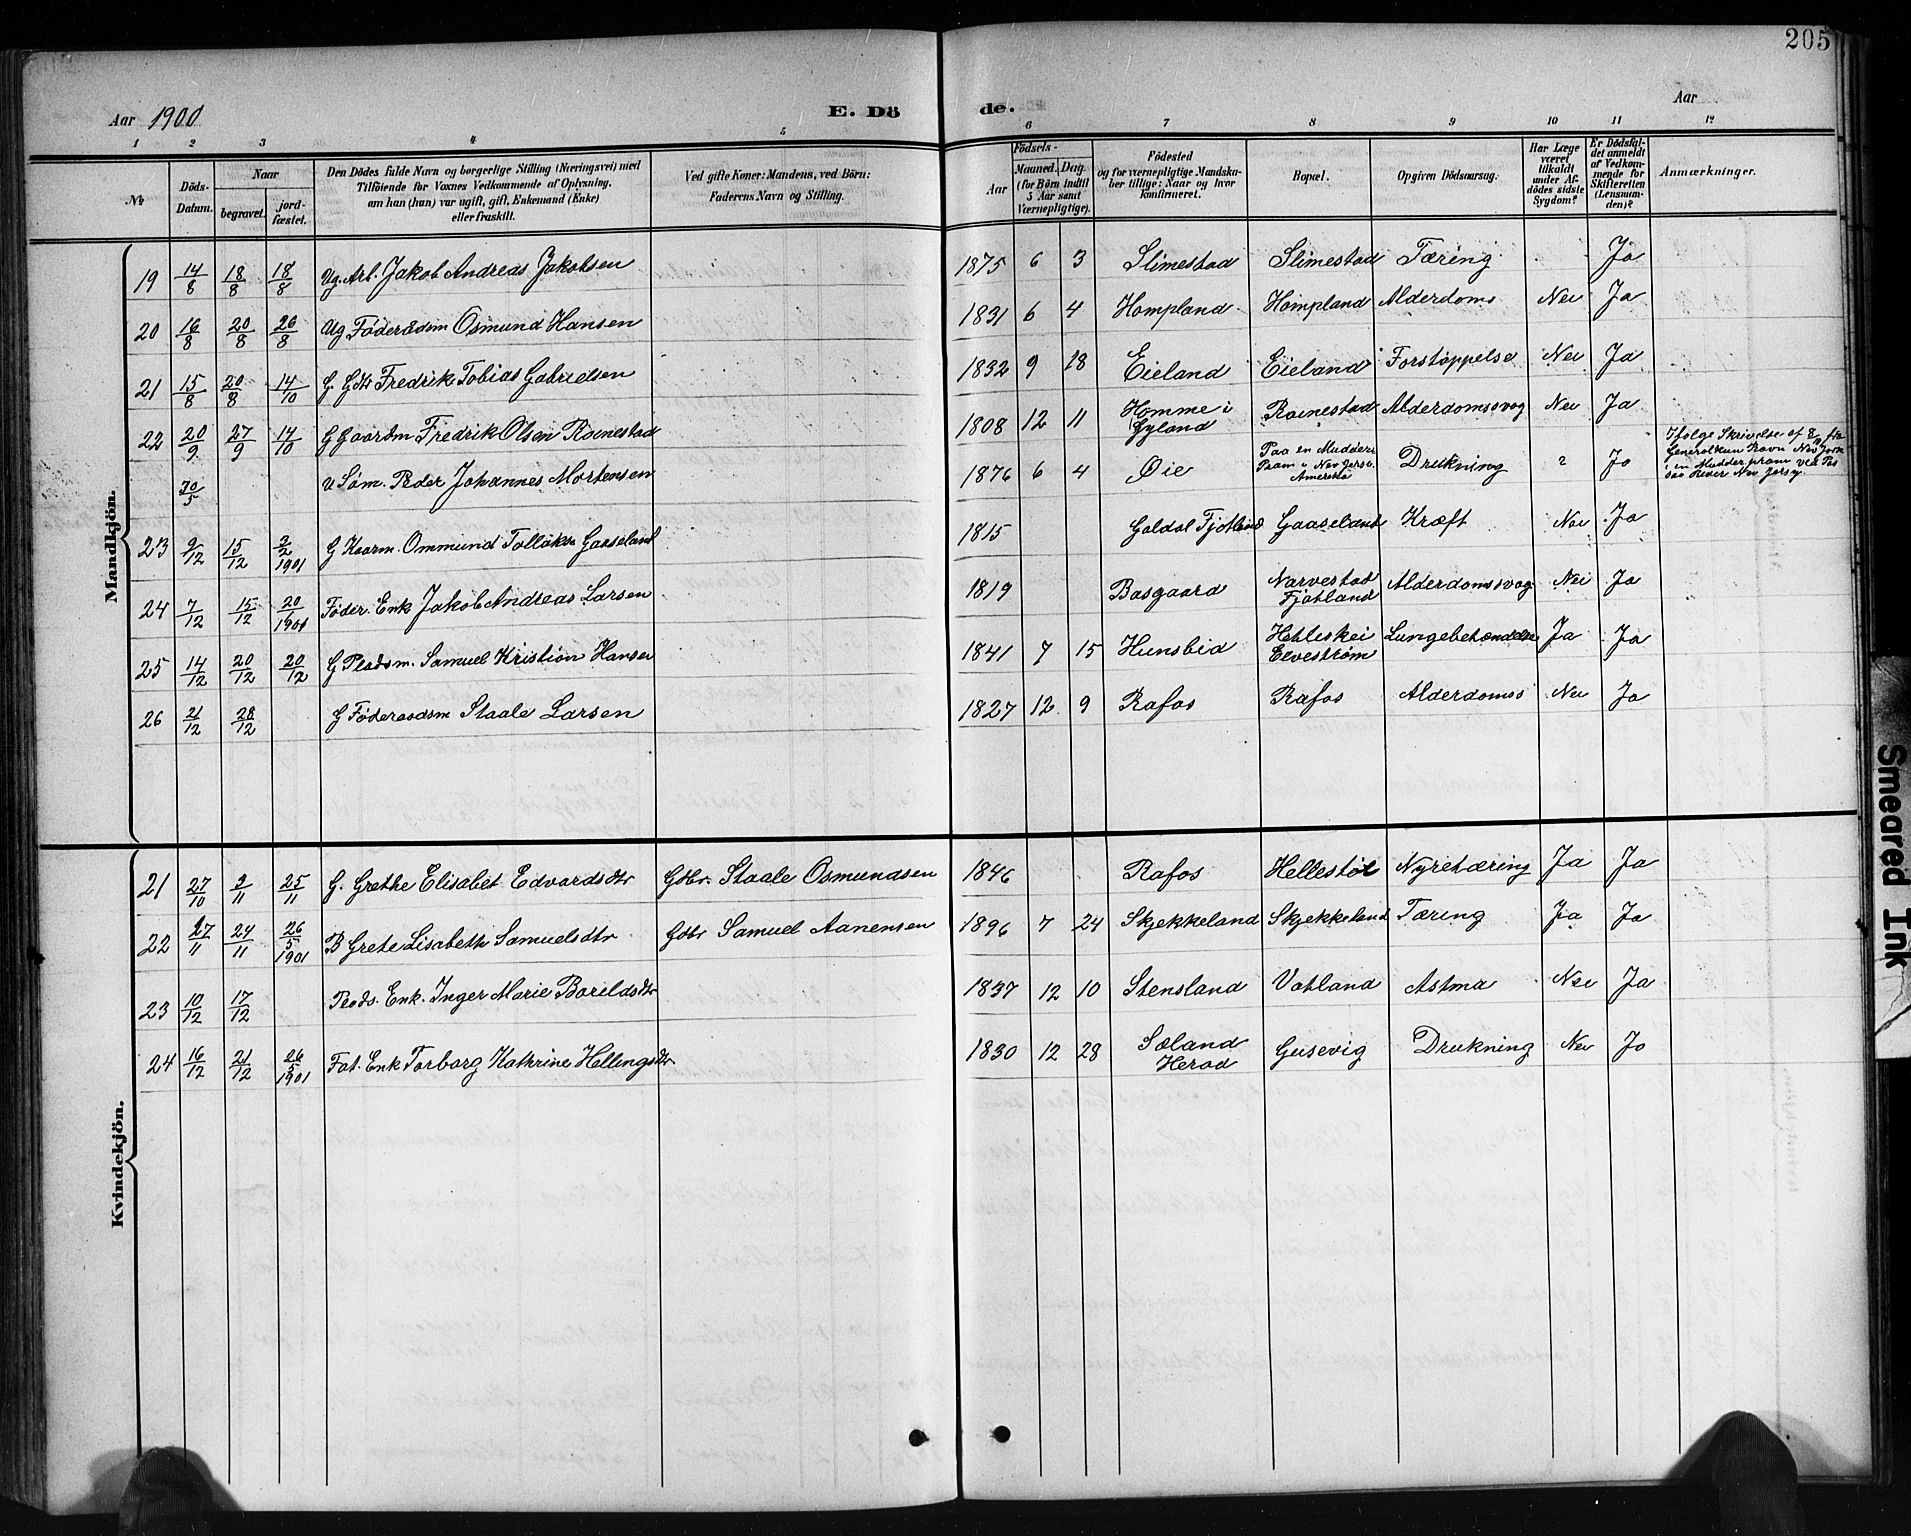 205
Aar 1900
E. Dö
de.
Aar
1 2 3 4 5 6 7 8 9 10 11 12
No
Döds-Datum.
Naar
begravet.
jord-fæstet.
Den Dödes fulde Navn og borgerlige Stilling (Næringsvei) med
Tilföiende for Voxnes Vedkommende af Oplysning,
om han (hun) var ugift, gift, Enkemand (Enke)
eller fraskilt.
Ved gifte Koner: Mandens, ved Börn:
Faderens Navn og Stilling.
Födsels-
Aar
Maaned. Dag.
(for Börn indtil
5 Aar samt
Værnepligtige).
Födested
og for værnepligtige Mandska-
ber tillige: Naar og hvor
konfirmeret.
Bopæl.
Opgiven Dödsaarsag.
Har Læge
været
tilkaldt
under Af-
dödes sidste
Sygdom?
Er Dödsfal-
det anmeldt
af Vedkom-
mende for
Skifteretten
(Lensman-
den)?
Anmærkninger.
Mandkjön.
19 14/8 18/8 18/8 Ug. Arb. Jakob Andreas Jakobsen 1875 6 3 Slimestad Slimestad Tæring Ja
20 16/8 20/8 26/8 Ug Føderådsm Osmund Hansen 1831 6 4 Hompland Hompland Alderdoms Nei Ja
21 15/8 20/8 14/10 G. Gbr Fredrik Tobias Gabrielsen 1832 9 18 Eieland Eieland Forstoppelse Nei Ja
22 20/9 27/9 14/10 G Gaardm Fredrik Olsen Roinestad 1808 12 11 Homme i Gyland Roinestad Alderdomssvag Nei Ja
30/5 U Søm. Peder Johannes Mortensen 1876 6 4 Øie Paa en Mudder Pram i New Jersey Amerika Drukning ? Ja Ifølge Skrivelse af 8/11 fra
Generalkon Ravn New York
i en Mudderpram ved Pas
saic River New Jersy
23 9/12 15/12 2/2 1901 G Kaarm. Ommund Tolláks. Gaaseland 1815 Galdal Fjotland Gaaseland Kræft Nei Ja
24 7/12 15/12 20/1 1901 Føder. Enk Jakob Andreas Larsen 1819 Basgaard Narvestad Fjotland Alderdomssvag Nei Ja
25 14/12 20/12 20/12 G Pladsm. Samuel Kristian Hansen 1841 7 15 Hunsbid Hetleskei Eevestrøm Lungebetændelse Ja Ja
26 21/12 28/12 G Føderaadsm Staale Larsen 1827 12 9 Rafos Rafos Alderdomss Nei Ja
Kvindekjön.
21 27/10 2/11 25/11 G. Grethe Elisabet Edvardsdtr Gbr. Staale Osmundsen 1846 Rafos Hellestøl Nyretæring Ja Ja
22 27/11 24/11 26/5 1901 B Grete Lisabeth Samuelsdtr Gdbr Samuel Aanensen 1896 7 24 Skjekkeland Skjekkeland Tæring Ja Ja
23 10/12 17/12 Plads. Enk. Inger Marie Borildsdtr 1837 12 10 Stensland Vatland Astma Nei Ja
24 16/12 21/12 26/5 1901 Fat. Enk Torborg Kathrine Hellingsdtr 1830 12 28 Søland Herad Geisevig Drukning Nei Ja
Smeared Ink